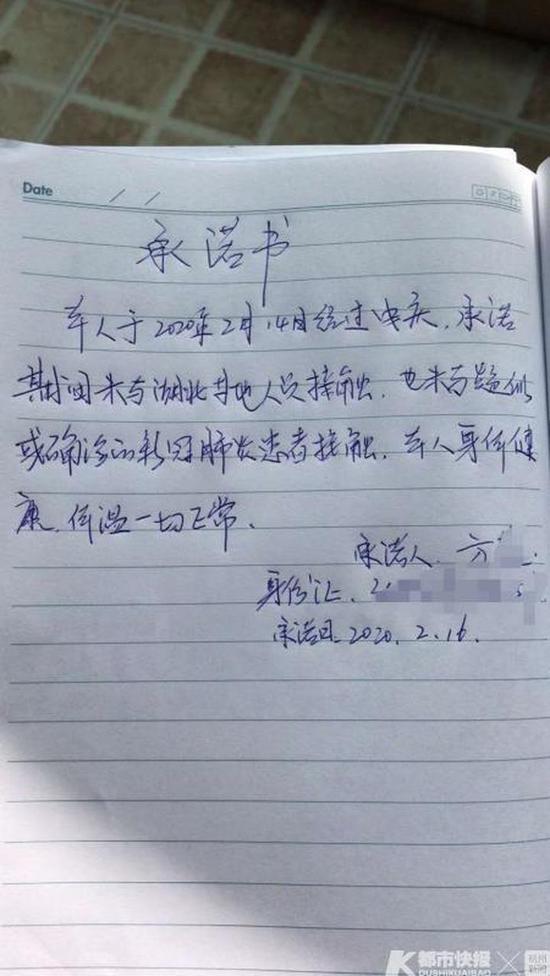 Date / /
承诺书
本人于2020年2月14日经过重庆,承诺
期间未与湖北等地人员接触,也未与疑似
或确诊的新冠肺炎患者接触,本人身体健
康,体温一切正常。
承诺人、方
身份证、2
承诺日、2020.2.16.
都市快报
DUSHIKUAIBAO